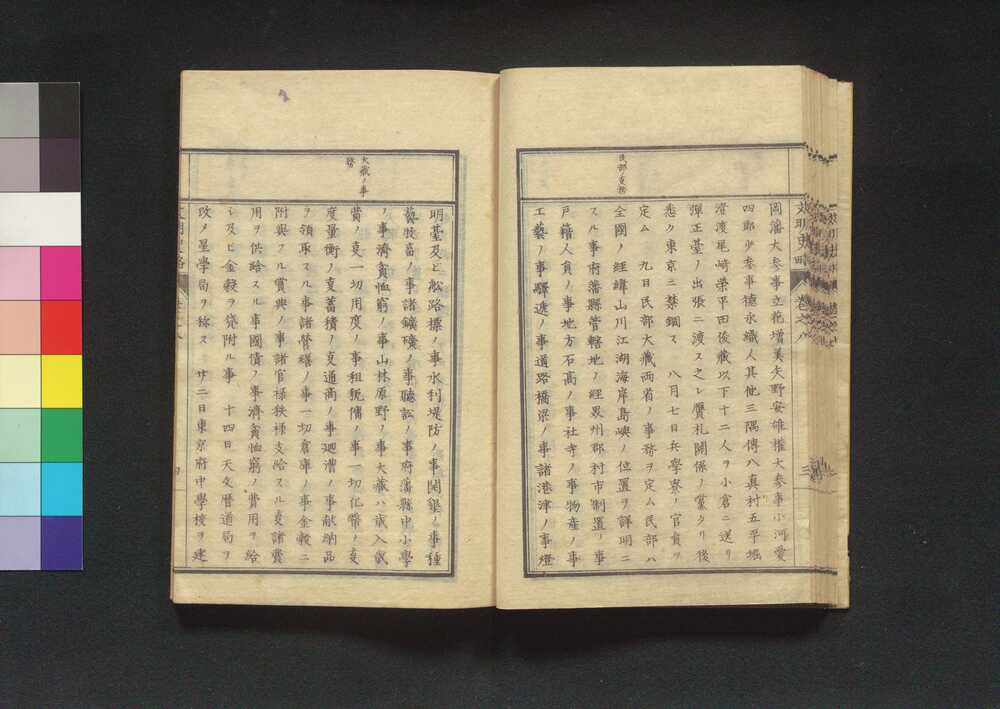 民部事務
岡藩大参事立花増美矢野安雄権大参事小河愛
四郎少参事徳永織人其他三隅傳八真村五平堀
澄渡尾崎榮平田後藏以下十二人ヲ小倉ニ送リ
彈正臺ノ出張ニ渡ス之レ贋札関係ノ黨タリ後
悉ク東京ニ禁錮ス 八月七日兵學寮ノ官員ヲ
定ム 九日民部大藏両省ノ事務ヲ定ム民部ハ
全國ノ經緯山川江湖海岸島嶼ノ位置ヲ詳明ニ
スル事府藩縣管轄地ノ經界州郡村市制置ノ事
戸籍人員ノ事地方石高ノ事社寺ノ事物産ノ事
工藝ノ事驛逓ノ事道路橋梁ノ事諸港津ノ事燈
大藏ノ事務
明臺及ヒ舩路標ノ事水利堤防ノ事開墾ノ事種
藝牧畜ノ事諸鑛礦ノ事聽訟ノ事府藩縣中小學
ノ事濟貧恤窮ノ事山林原野ノ事大藏ハ歳入歳
費ノ叓一切用度ノ事租税傭ノ事一切化幣ノ叓
度量衡ノ叓蓄積ノ叓通商ノ事廻漕ノ事献納品
ヲ領取スル事諸營繕ノ事一切倉庫ノ事金穀ニ
附與スル賞典ノ事諸官禄秩種支給スル叓諸費
用ヲ供給スル事國債ノ事濟貧恤窮ノ費用ヲ給
シ及ヒ金穀ヲ貸附ル事 十四日天文暦道局ヲ
改メ星學局ヲ称ス 廿二日東京府中學校ヲ建